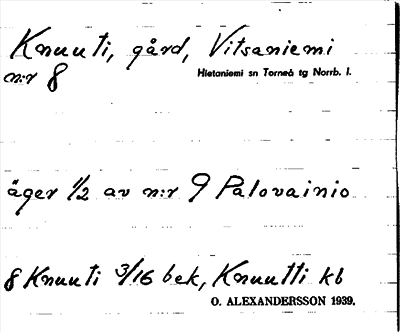 Knuuti, gård, Vitsaniemi
n:r 8
Hietaniemi sn Torneå tg Norrb. l.
äger 1/2 av n:r 9 Palovainio
8 Knuuti 3/16 bek, Knuutti kb
O. ALEXANDERSSON 1939.